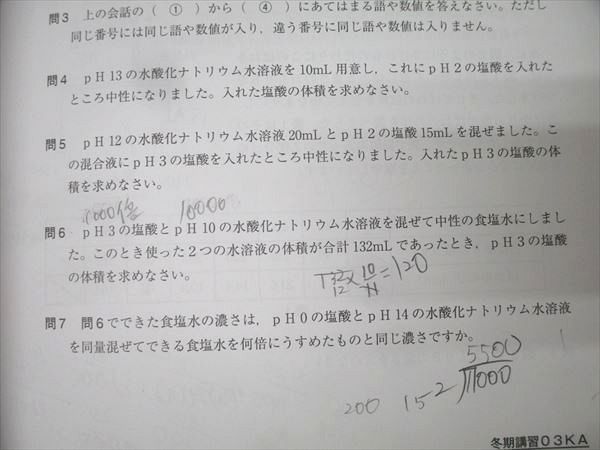 問3 上の会話の( ① )から( ④ )にあてはまる語や数値を答えなさい。ただし
同じ番号には同じ語や数値が入り，違う番号に同じ語や数値は入りません。
問4 pH13の水酸化ナトリウム水溶液を10mL用意し，これにpH2の塩酸を入れた
ところ中性になりました。入れた塩酸の体積を求めなさい。
問5 pH12の水酸化ナトリウム水溶液20mLとpH2の塩酸15mLを混ぜました。こ
の混合液にpH3の塩酸を入れたところ中性になりました。入れたpH3の塩酸の体
積を求めなさい。
1000倍 10000
問6 pH3の塩酸とpH10の水酸化ナトリウム水溶液を混ぜて中性の食塩水にしまし
た。このとき使った2つの水溶液の体積が合計132mLであったとき，pH3の塩酸
の体積を求めなさい。
132×10/11=120
12
問7 問6でできた食塩水の濃さは，pH0の塩酸とpH14の水酸化ナトリウム水溶液
を同量混ぜてできる食塩水を何倍にうすめたものと同じ濃さですか。
5500
200 15 2 11000
冬期講習03KA